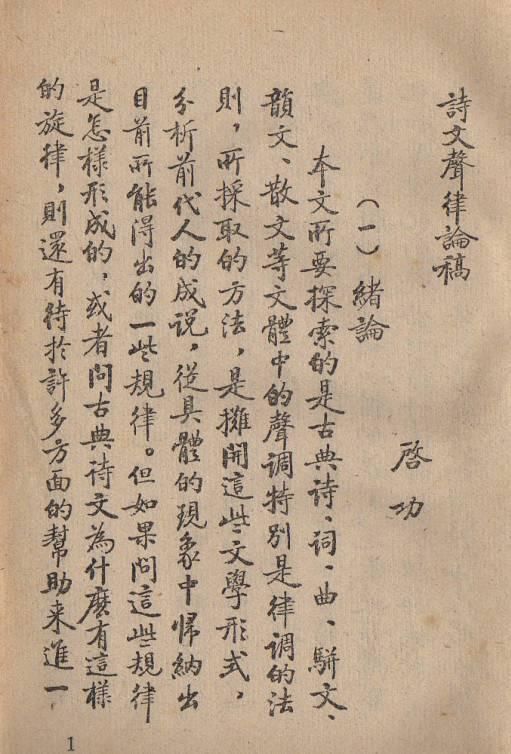 詩文聲律論稿
啓功
（一）緒論
本文所要探索的是古典詩、詞、曲、駢文、
韻文、散文等文體中的聲調特別是律調的法
則，所採取的方法，是攤開這些文學形式，
分析前代人的成说，從具體的現象中歸納出
目前所能得出的一些規律。但如果问這些規律
是怎樣形成的，或者问古典诗文為什麽有這樣
的旋律，則還有待於許多方面的幫助来進一
1